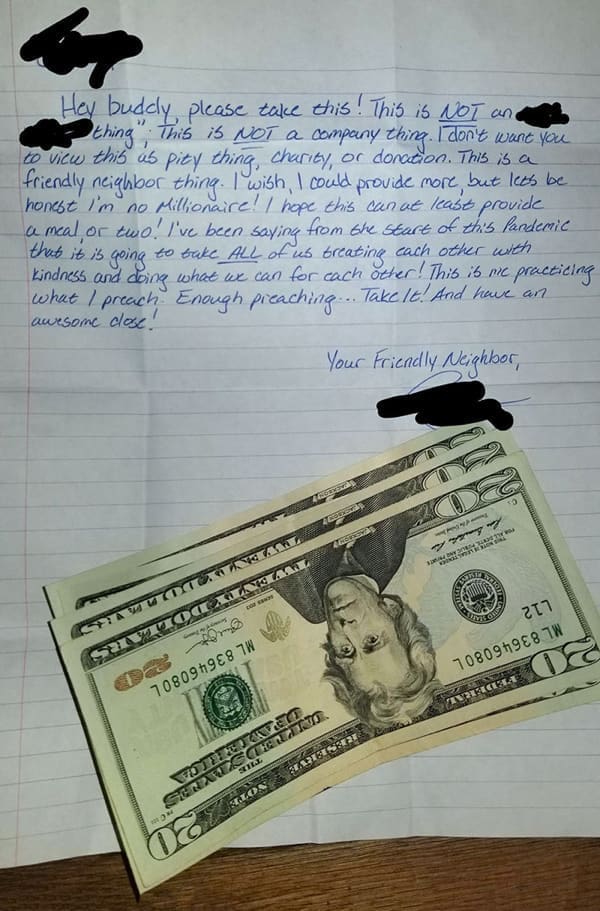 Hey buddy, please take this! This is NOT an
thing"; This is NOT a company thing. I don't want you
to view this as pity thing, charity, or donation. This is a
friendly neighbor thing. I wish, I could provide more, but lets be
honest I'm no Millionaire! I hope this can at least provide
a meal or two! I've been saying from the start of this Pandemic
that it is going to take ALL of us treating each other with
kindness and doing what we can for each other! This is me practicing
what I preach. Enough preaching... Take It! And have an
awesome close!
Your Friendly Neighbor,
20
FEDERAL RESERVE NOTE
20
THE
UNITED STATES
OF AMERICA
ML83646080L
L12
ML83646080L
SERIES 2013
THIS NOTE IS LEGAL TENDER
FOR ALL DEBTS, PUBLIC AND PRIVATE
Treasurer of the United States
Secretary of the Treasury
JACKSON
20
TWENTY DOLLARS
20
JACKSON
TWENTY DOLLARS
20
JACKSON
TWENTY DOLLARS
20